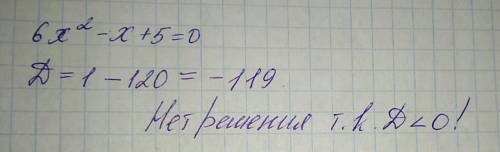 6x² - x + 5 = 0
D = 1 - 120 = -119.
Нет решения т.к. D < 0!